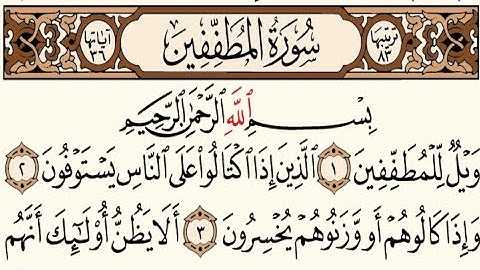 ترتيبها ٨٣ سُورَةُ المُطَفِّفِينَ آياتها ٣٦
بِسْمِ اللَّهِ الرَّحْمَٰنِ الرَّحِيمِ
وَيْلٌ لِّلْمُطَفِّفِينَ ١ الَّذِينَ إِذَا اكْتَالُوا عَلَى النَّاسِ يَسْتَوْفُونَ ٢
وَإِذَا كَالُوهُمْ أَو وَّزَنُوهُمْ يُخْسِرُونَ ٣ أَلَا يَظُنُّ أُولَٰئِكَ أَنَّهُم